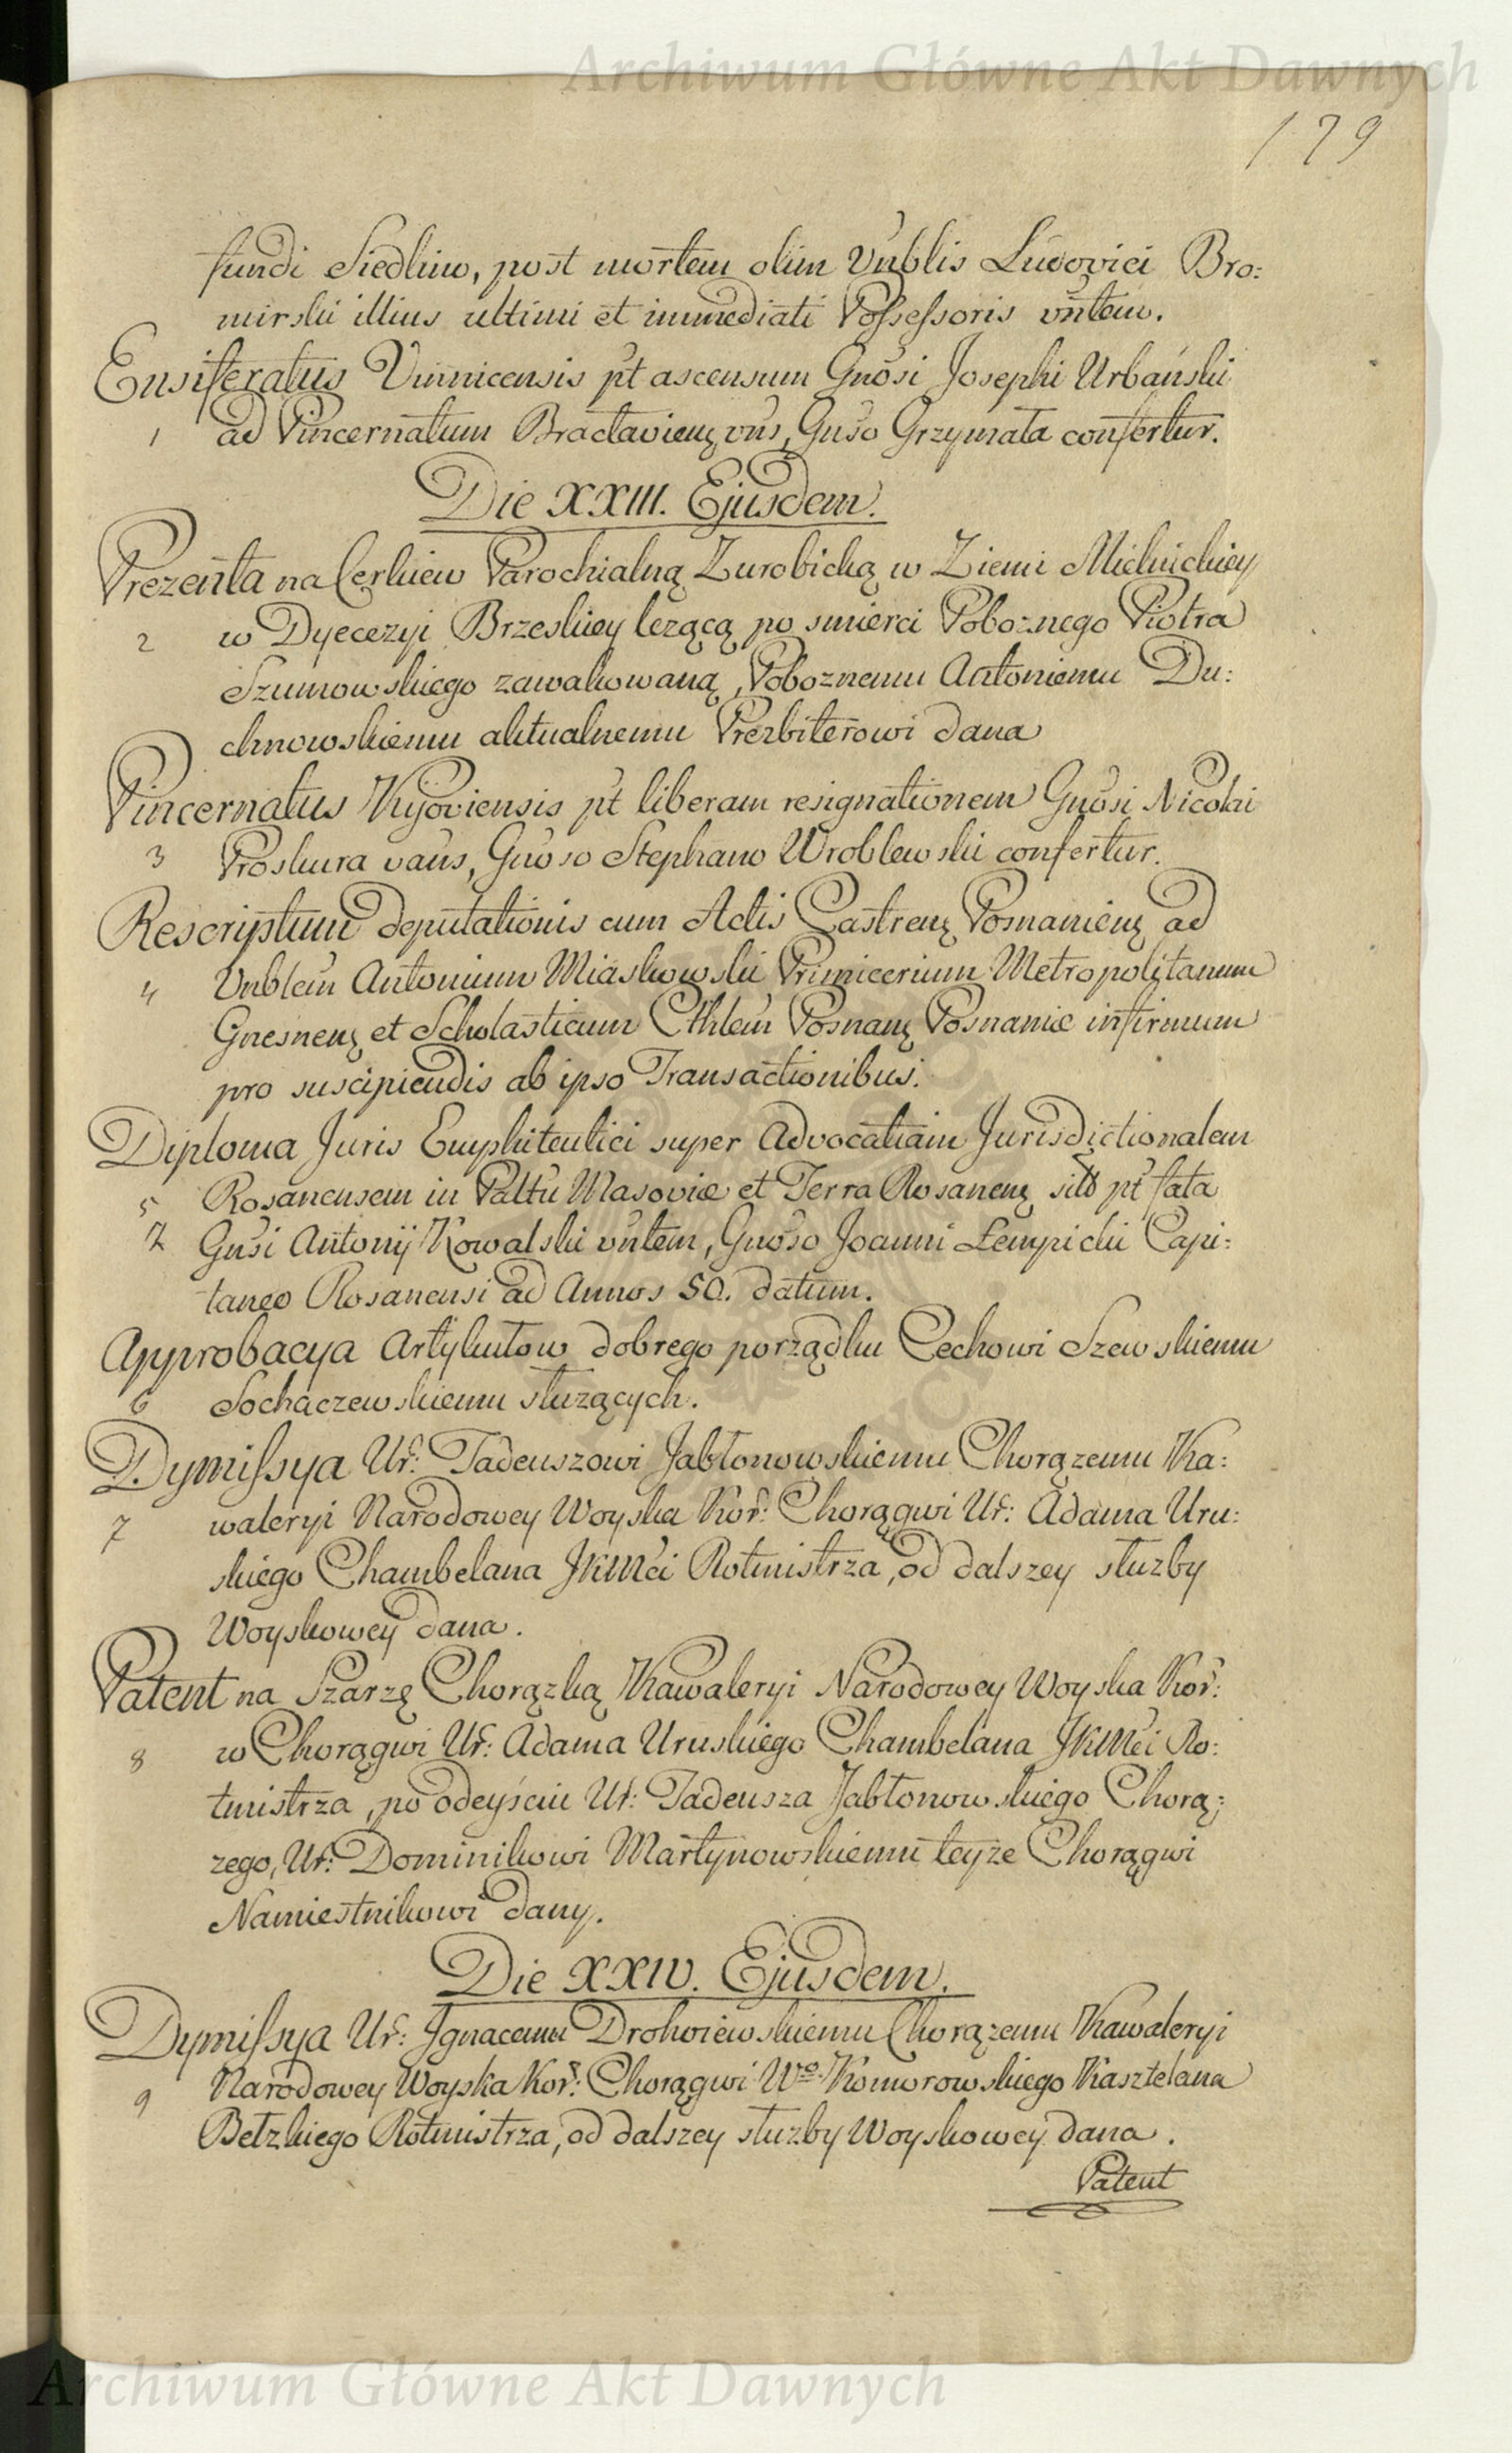 Archiwum Główne Akt Dawnych
179
fundi Siedkiw, post mortem olim Vnblis Ludovici Bro:
mirski illius ultimi et immediati Possessoris vntem.
Ensiferatus Vinnicensis pt ascensum Gnosi Josephi Urbański
1 ad Pincernatum Bractavienȝ vns, Gnso Grzymała confertur.
Die XXIII. Ejusdem.
Prezenta na Cerkiew Parochialną Zurobicką w Ziemi Mielnickiey
2 w Dyecezyi Brzeskiey lezącą po smierci Poboznego Piotra
Szumowskiego zawakowaną, Poboznemu Antoniemu Du:
chnowskiemu aktualnemu Prezbiterowi dana
Pincernatus Kijoviensis pt liberam resignationem Gnosi Nicolai
3 Proskura vans, Gnoso Stephano Wroblewski confertur.
Rescriptum deputationis cum Actis Castrenȝ Posnanienȝ ad
4 Vnblem Antonium Miaskowski Primicerium Metropolitanum
Gnesnenȝ et Scholasticum Cthlem Posnanȝ Posnaniæ infirmum
pro suscipiendis ab ipso Transactionibus.
Diploma Juris Emphiteutici super Advocatiam Jurisdictionalem
5 Rosanensem in Pałtu Masoviæ et Terra Rosanenȝ pt fata
Gnsi Antonij Kowalski vntem, Gnoso Joanni Łempicki Capi:
taneo Rosanensi ad Annos 50. datum.
Approbacya Artykułow dobrego porządku Cechowi Szewskiemu
6 Sochaczewskiemu słuzących.
Dymissya Ur: Tadeuszowi Jabłonowskiemu Chorązemu Ka:
7 waleryi Narodowey Woyska Kor: Chorągwi Ur: Adama Uru:
skiego Chambelana JKMci Rotmistrza, od dalszey słuzby
Woyskowey dana.
Patent na Szarzę Chorązką Kawaleryi Narodowey Woyska Kor:
8 w Chorągwi Ur: Adama Uruskiego Chambelana JKMci Ro:
tmistrza, po odeyściu Ur: Tadeusza Jabłonowskiego Chorą:
zego, Ur: Dominikowi Martynowskiemu teyze Chorągwi
Namiestnikowi dany.
Die XXIV. Ejusdem.
Dymissya Ur: Ignacemu Drohoiewskiemu Chorązemu Kawaleryi
9 Narodowey Woyska Kor: Chorągwi Wo. Komorowskiego Kasztelana
Bełzkiego Rotmistrza, od dalszey słuzby Woyskowey dana.
Patent
Archiwum Główne Akt Dawnych